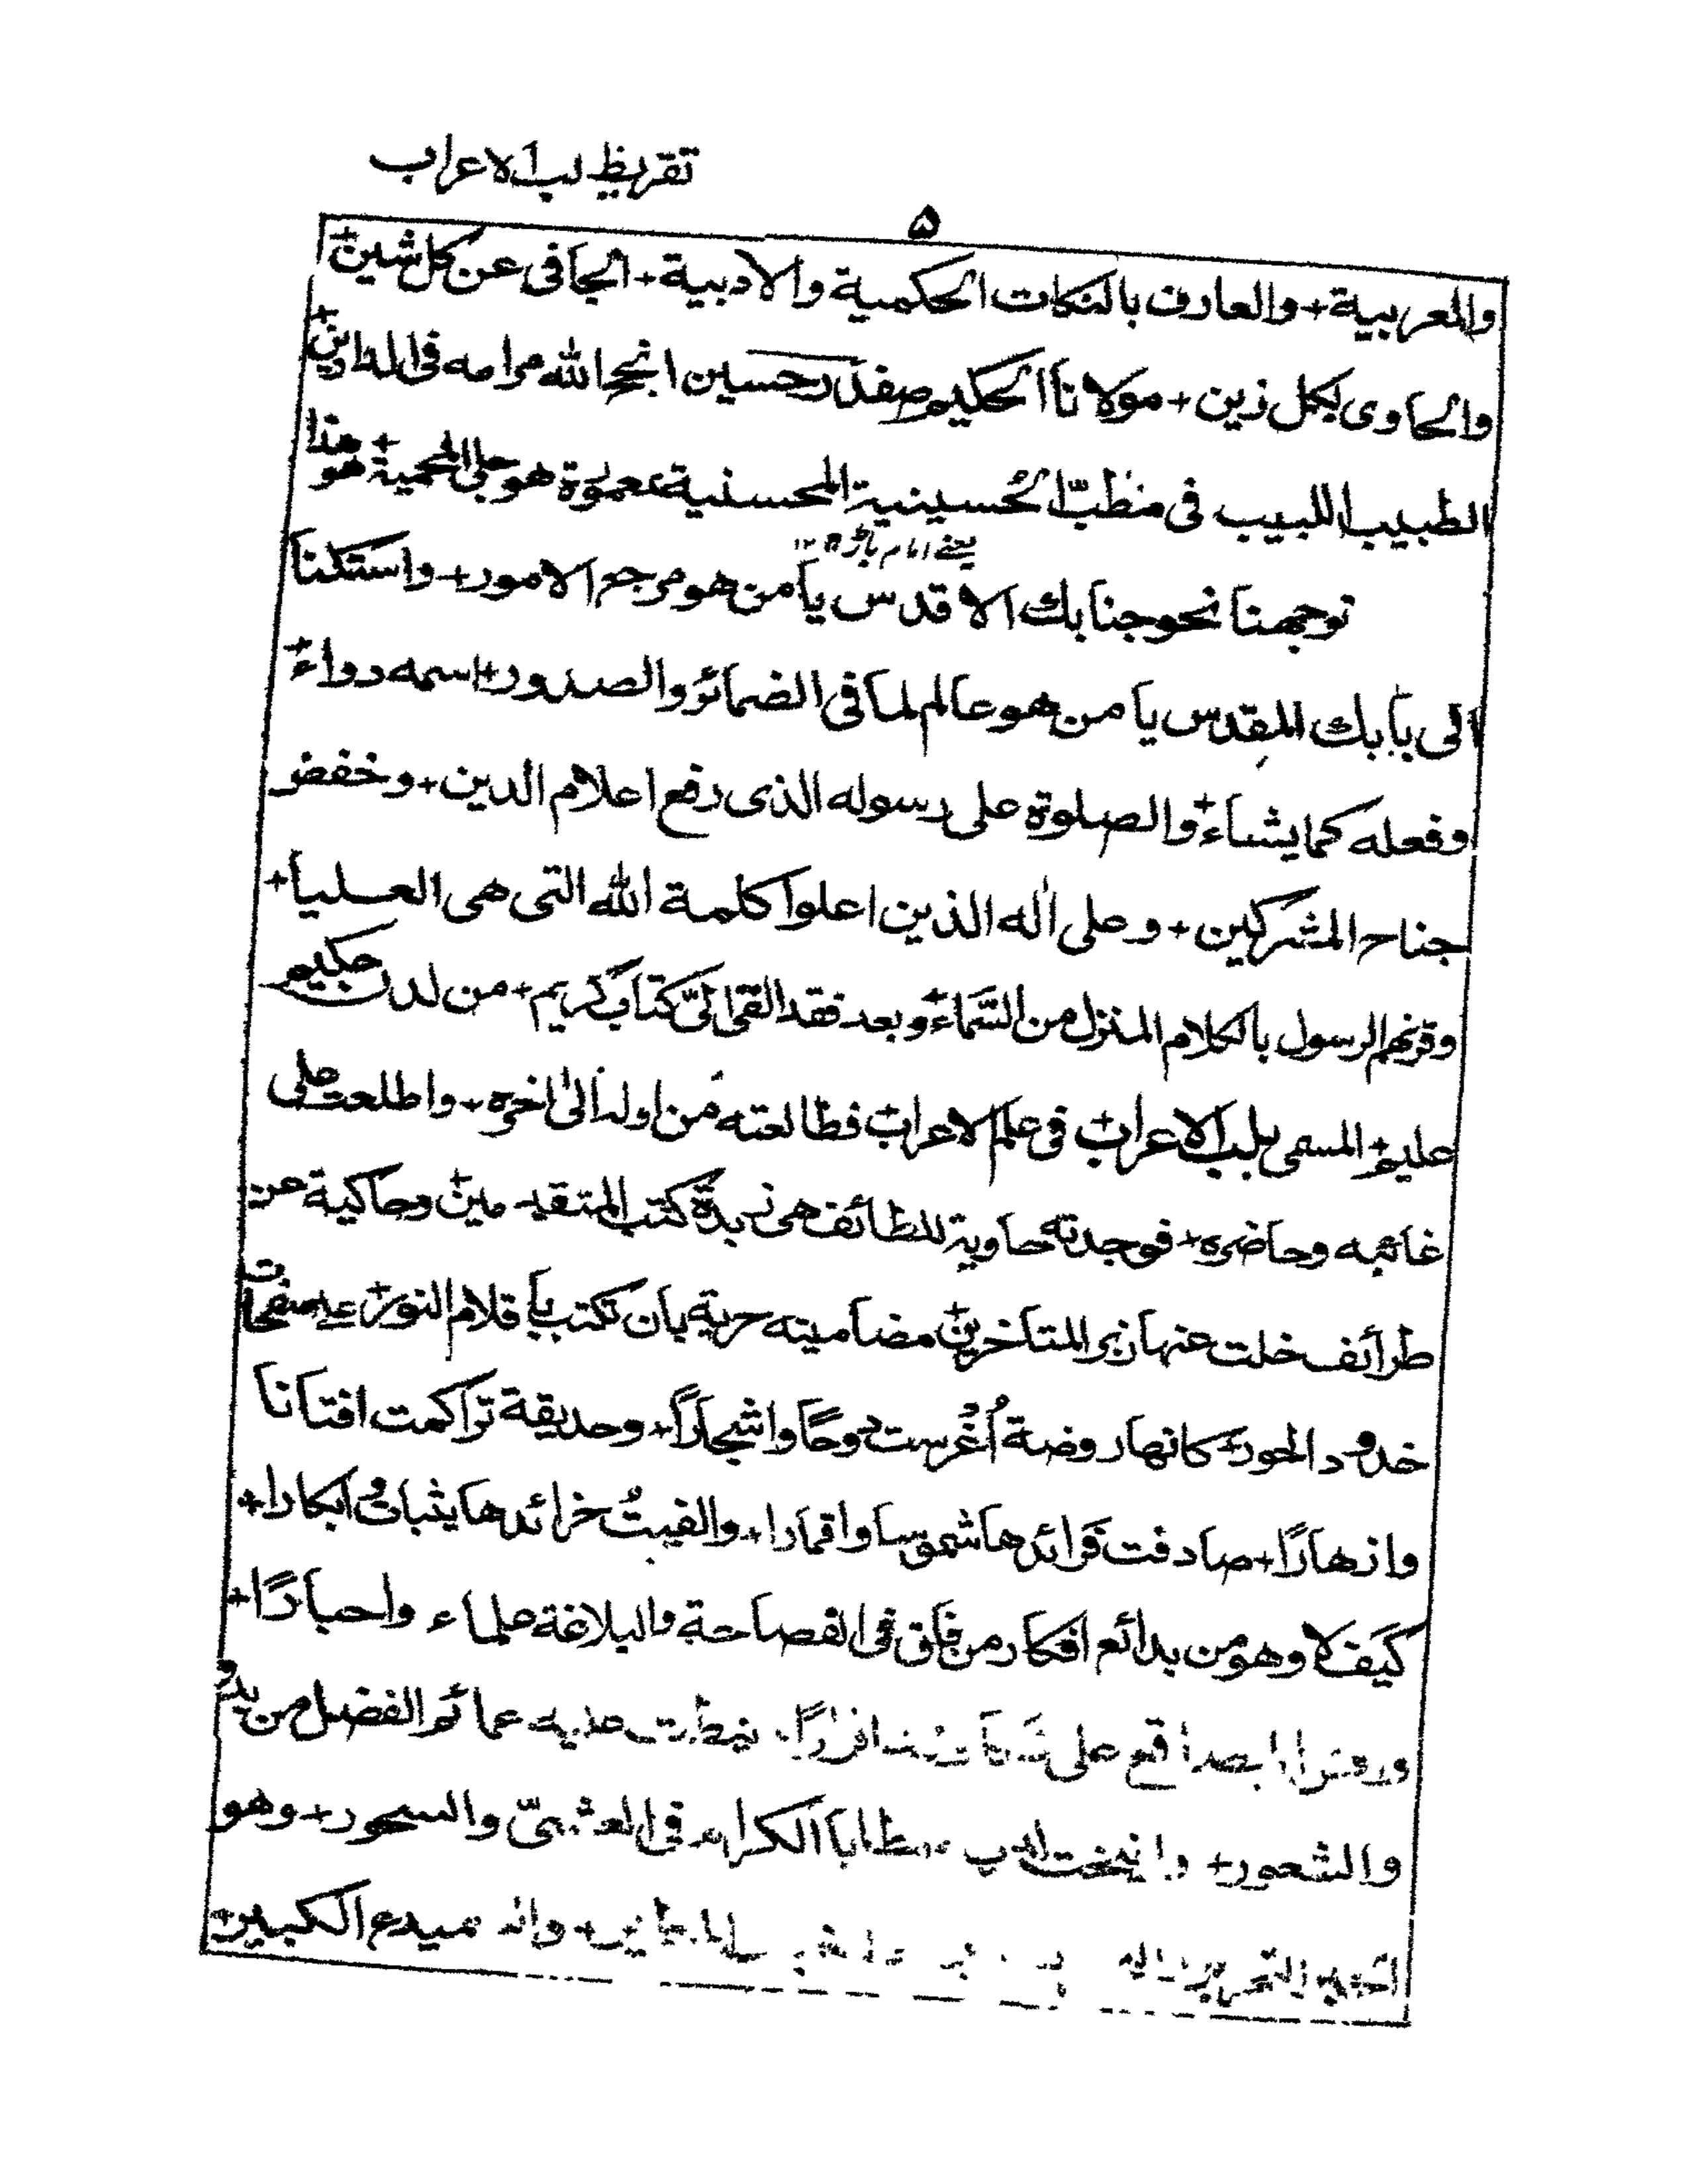 تقريظ لب الاعراب
۵
والعربية+ والعارف بالنكات الحكمية والادبية+ الجافى عن كل شين+
والحاوى لكل زين+ مولانا الحكيم صفدر حسين انجح الله مرامه فى الدارين+
الطبيب اللبيب فى مطبّ الحسينية المحسنية هو جلى المحمية+ هو هذا
يعنے امام باڑہ ١٢
توجهنا نحو جنابك الاقدس يا من هو مرجع الامور+ واستكنا
الى بابك المقدس يا من هو عالم لما فى الضمائر والصدور+ اسمه دواء+
وفعله كما يشاء+ والصلوة على رسوله الذى رفع اعلام الدين+ وخفض
جناح المشركين+ وعلى اٰله الذين اعلوا كلمة الله التى هى العليا+
وقرنهم الرسول بالكلام المنزل من السَّمَاء+ وبعد فقد القى الىّ كتاب كريم+ من لدن حكيم
عليم+ المسمى بلب الاعراب+ فى علم الاعراب+ فطالعته من اوله الىٰ اخره+ واطلعت على
غائبه وحاضره+ فوجدته حاوية للطائف هى زبدة كتب المتقدمين+ وحاكية عن
طرائف خلت عنها زبر المتاخرين+ مضامينه حرية بان تكتب باقلام النور+ علے صفحات
خدود الحور+ كانها روضة اُغْرست دوحًا واشجارًا+ وحديقة تراكمت افتانا
وازهارًا+ صادفت فرائدها شموسا واقمارا+ والفيتُ خرائدها يثبات وابكارا+
كيف لا وهو من بدائع افكار من فاق فى الفصاحة والبلاغة علماء واحبارًا+
على نيطت عليه عمائم الفضل من بدو
والشعور+ وانيخت لديه مطايا الكرام فى العشىّ والسحور+ وهو
النحرير وانه مبدع الكبير+